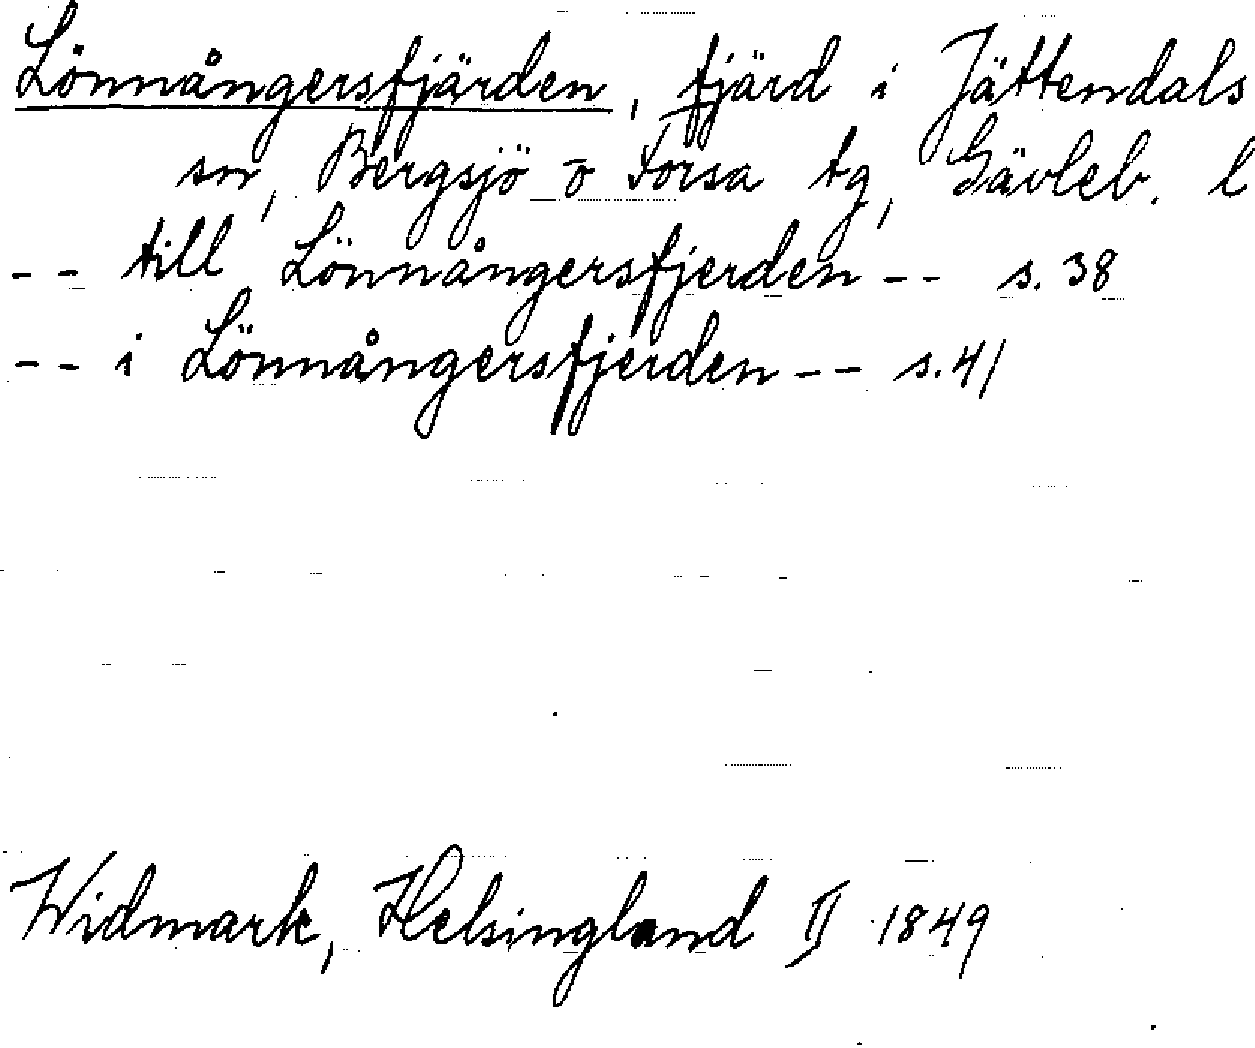 Lönnångersfjärden, fjärd i Jättendals
sn, Bergsjö o Forsa tg, Gävleb. l
-- till Lönnångersfjerden -- s. 38
-- i Lönnångersfjerden -- s. 41
Widmark, Helsingland II 1849